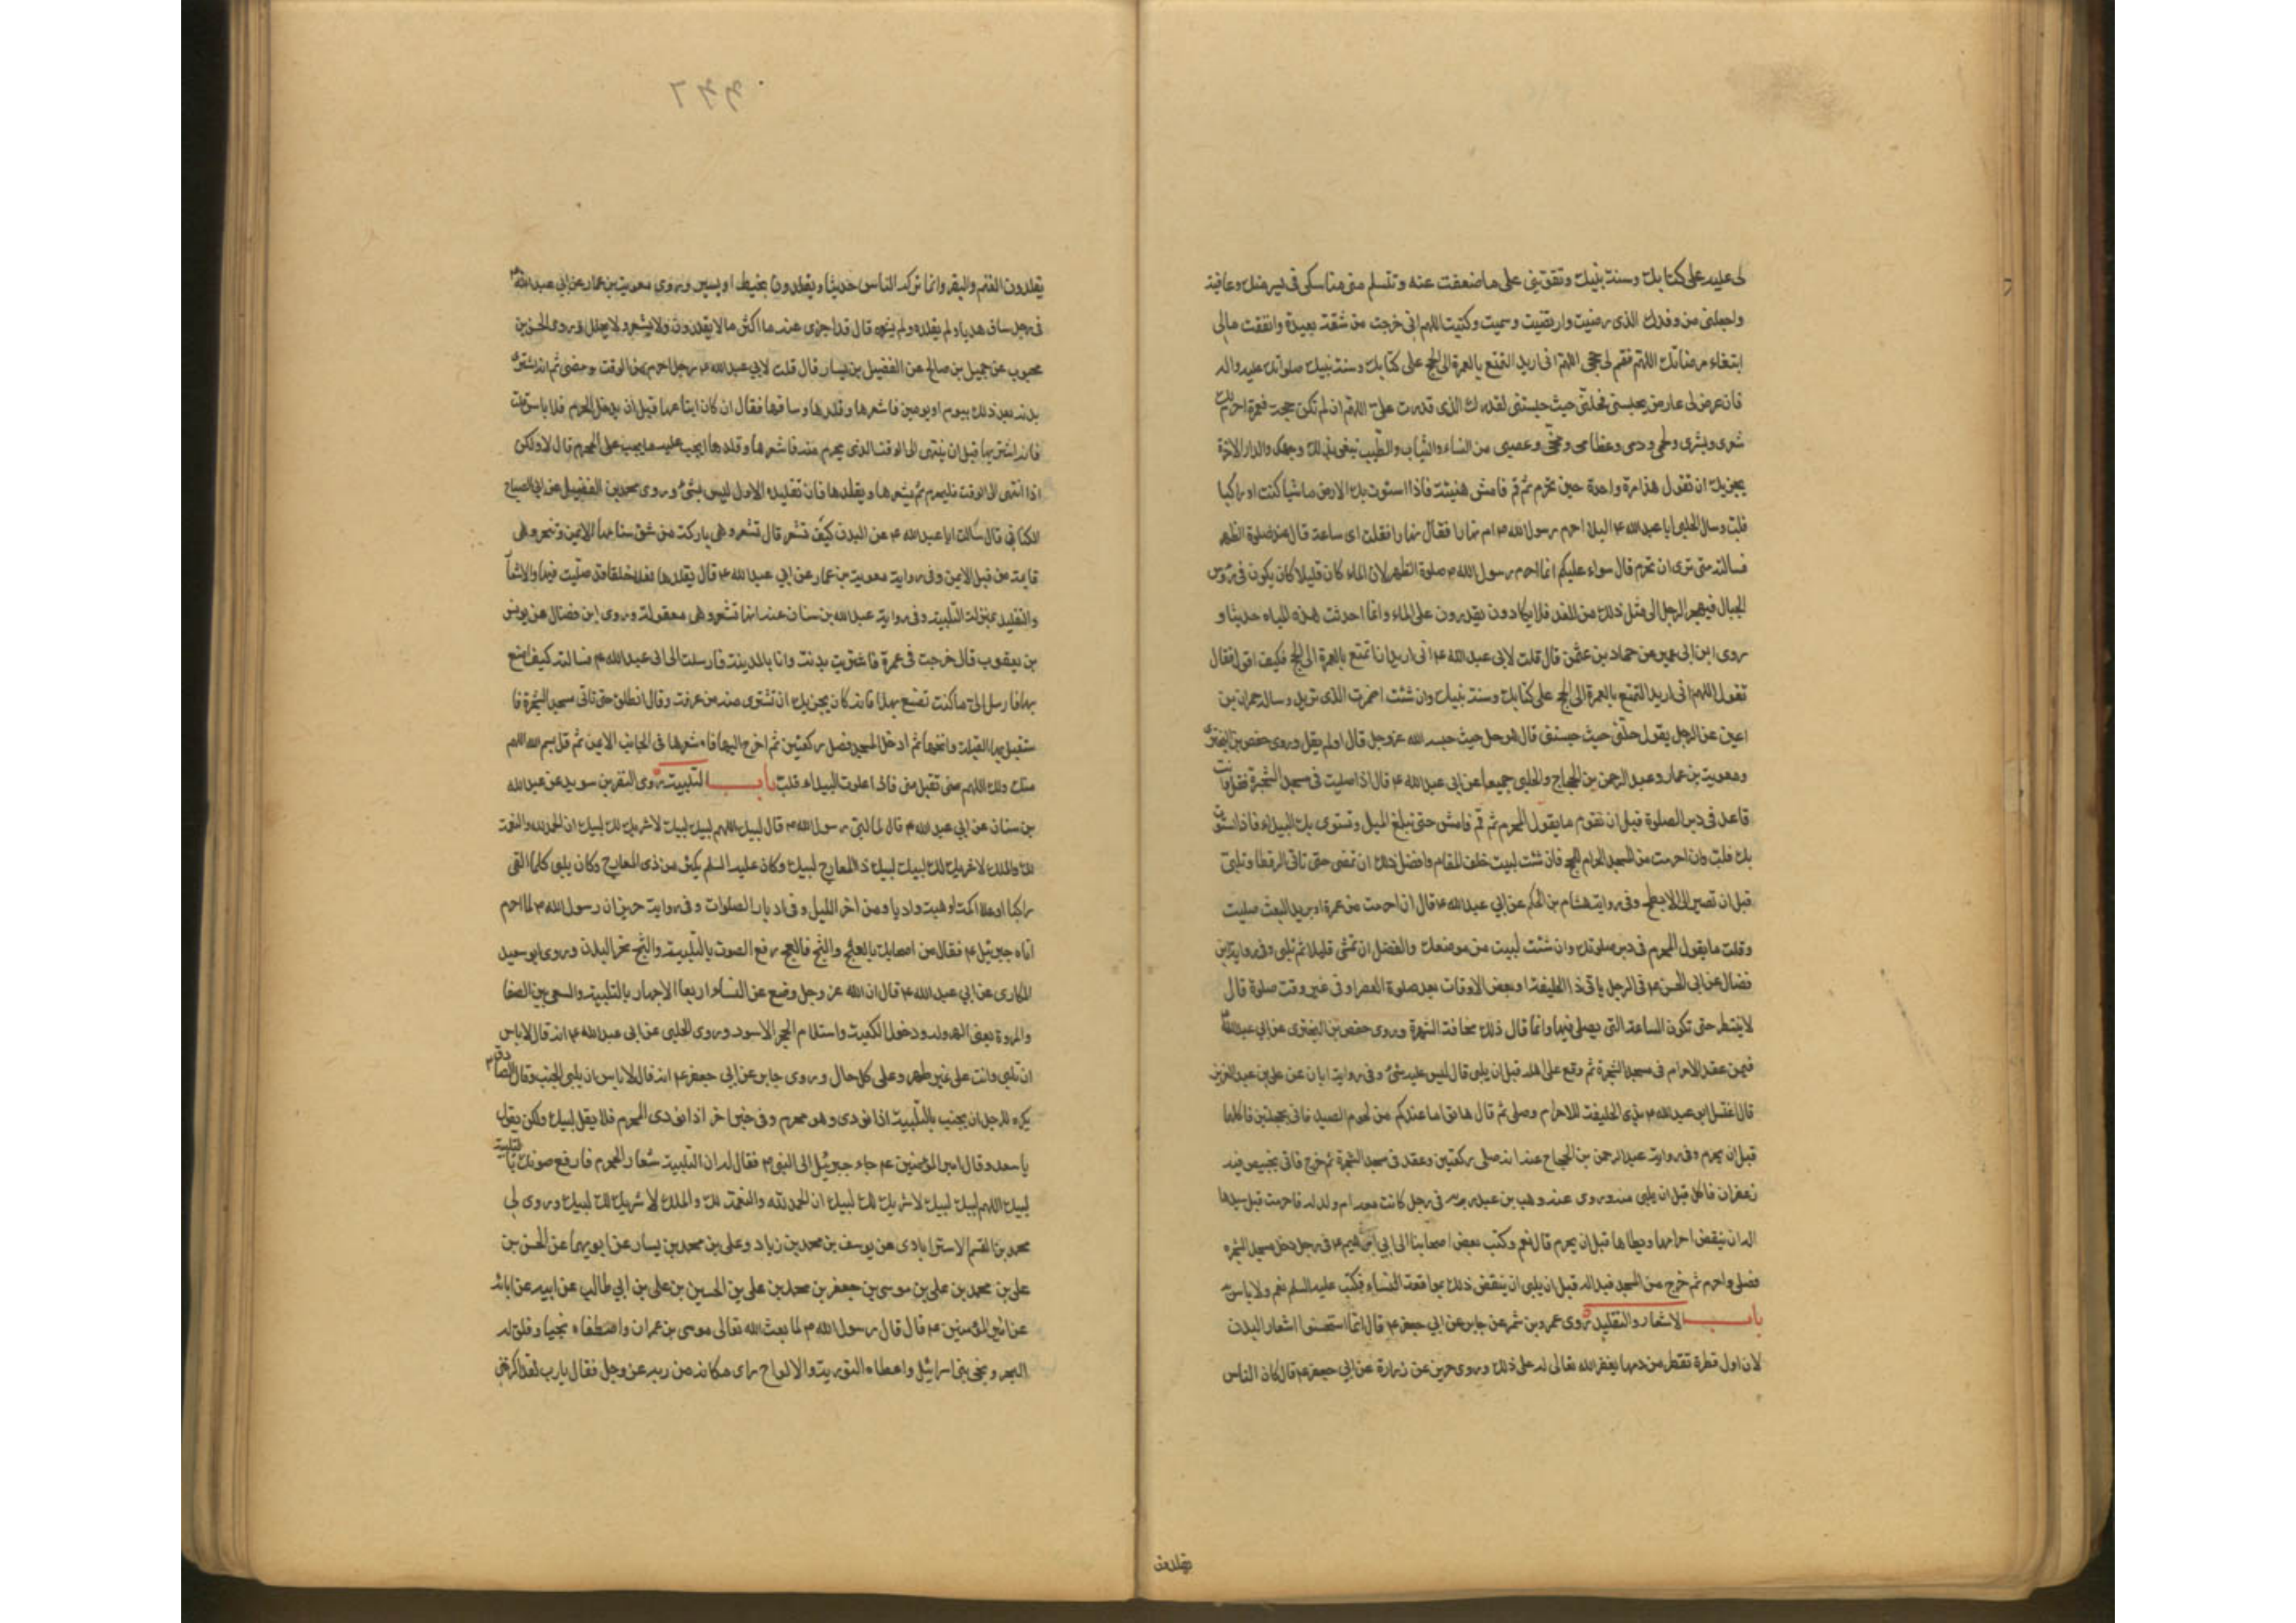 لى عليه على كتابك وسنة نبيك وتقويني على ما ضعفت عنه وتسلم مني مناسكي في يسر منك وعافية
واجعلني من وفدك الذى رضيت وارتضيت وسميت وكتبت اللهم اني خرجت من شقة بعيدة وانفقت مالي
ابتغاء مرضاتك اللهم فتمم لي حجى اللهم انى اريد التمتع بالعمرة الى الحج على كتابك وسنة نبيك صلواتك عليه واله
فان عرض لى عارض يحبسني فحلني حيث حبستني لقدرك الذى قدرت علي اللهم ان لم تكن حجة فعمرة احرم لك
شعرى وبشرى ولحمى ودمى وعظامى ومخي وعصبى من النساء والثياب والطيب نبتغى بذلك وجهك والدار الاخرة
يجزيك ان تقول هذا مرة واحدة حين تحرم ثم قم فامش هنيئة فاذا استوت بك الارض ماشيا كنت او راكبا
فلب وسال الحلبى ابا عبد الله ع اليلا احرم رسول الله ص ام نهارا فقال نهارا فقلت اى ساعة قال عند صلوة الظهر
فسالته متى ترى ان تحرم قال سواء عليكم انما احرم رسول الله ص صلوة الظهر لان الماء كان قليلا كان يكون فى رؤس
الجبال فيهجر الرجل الى مثل ذلك من الغد فلا يكادون يقدرون على الماء وانما احدثت هذه المياه حديثا و
روى ابن ابى عمير عن حماد بن عثمن قال قلت لابى عبد الله ع انى اريد ان اتمتع بالعمرة الى الحج فكيف اقول فقال
تقول اللهم انى اريد التمتع بالعمرة الى الحج على كتابك وسنة نبيك وان شئت اضمرت الذى تريد وساله حمران بن
اعين عن الرجل يقول حلني حيث حبستنى قال هو حل حيث حبسه الله عز وجل قال اولم يقل وروى حفص بن البخترى
ومعوية بن عمار وعبد الرحمن بن الحجاج والحلبى جميعا عن ابى عبد الله ع قال اذا صليت فى مسجد الشجرة فقل وانت
قاعد فى دبر الصلوة قبل ان تقوم ما يقول المحرم ثم قم فامش حتى تبلغ الميل وتستوى بك البيداء فاذا استوت
بك فلب وان احرمت من المسجد الحرام للحج فان شئت لبيت خلف المقام وافضل ذلك ان تمضى حتى تاتى الرقطا وتلبى
قبل ان تصير الى الابطح وفى رواية هشام بن الحكم عن ابى عبد الله ع قال ان احرمت من غمرة او بريد البعث صليت
وقلت ما يقول المحرم فى دبر صلوتك وان شئت لبيت من موضعك والفضل ان تمشى قليلا ثم تلبى وفى رواية ابن
فضال عن ابى الحسن ع فى الرجل ياتى ذا الحليفة او بعض الاوقات بعد صلوة العصر او فى غير وقت صلوة قال
لا ينتظر حتى تكون الساعة التى يصلى فيها وانما قال ذلك مخافة الشهرة وروى حفص بن البخترى عن ابى عبد الله ع
فيمن عقد الاحرام فى مسجد الشجرة ثم وقع على اهله قبل ان يلبى قال ليس عليه شئ وفى رواية ابان عن على بن عبد العزيز
قال اغتسل ابو عبد الله ع بذى الحليفة للاحرام وصلى ثم قال هاتوا ما عندكم من لحوم الصيد فاتى بحجلتين فاكلهما
قبل ان يحرم وفى رواية عبد الرحمن بن الحجاج عنه انه صلى ركعتين وعقد فى مسجد الشجرة ثم خرج فاتى بخبيص فيه
زعفران فاكل قبل ان يلبى منه وروى عنه وهب بن عبد ربه فى رجل كانت معه ام ولد له فاحرمت قبل سيدها
اله ان ينقض احرامها ويطاها قبل ان يحرم قال نعم وكتب بعض اصحابنا الى ابى ابراهيم ع فى رجل دخل مسجد الشجرة
فصلى واحرم ثم خرج من المسجد فبدا له قبل ان يلبى ان ينقض ذلك بمواقعة النساء فكتب عليه السلم نعم ولا باس به
باب الاشعار والتقليد روى عمرو بن شمر عن جابر عن ابى جعفر ع قال انما استحسنوا اشعار البدن
لان اول قطرة تقطر من دمها يغفر الله تعالى له على ذلك وروى حريز عن زرارة عن ابى جعفر ع قال كان الناس
يقلدون
يقلدون الغنم والبقر وانما تركه الناس حديثا ويقلدون بخيط او بسير وروى معوية بن عمار عن ابى عبد الله ع
فى رجل ساق هديا ولم يقلده ولم يشعره قال قد اجزى عنه ما اكثر ما لا يقلدون ولا يشعر ولا يجلل وروى الحسن بن
محبوب عن جميل بن صالح عن الفضيل بن يسار قال قلت لابى عبد الله ع رجل احرم من الوقت ومضى ثم انه اشترى
بدنة بعد ذلك بيوم او يومين فاشعرها وقلدها وساقها فقال ان كان ابتاعها قبل ان يدخل الحرم فلا باس قلت
فانه اشتريها قبل ان ينتهى الى الوقت الذى يحرم منه فاشعرها وقلدها ايجب عليه ما يجب على المحرم قال لا ولكن
اذا انتهى الى الوقت فليحرم ثم يشعرها ويقلدها فان تقليده الاول ليس بشئ وروى محمد بن الفضيل عن ابى الصباح
الكنانى قال سالت ابا عبد الله ع عن البدن كيف تشعر قال تشعر وهى باركة من شق سنامها الايمن وتنحر وهى
قايمة من قبل الايمن وفى رواية معوية بن عمار عن ابى عبد الله ع قال يقلدها نعلا خلقا قد صليت فيها والاشعار
والتقليد بمنزلة التلبية وفى رواية عبد الله بن سنان عنه انها تشعر وهى معقولة وروى ابن فضال عن يونس
بن يعقوب قال خرجت فى عمرة فاشتريت بدنة وانا بالمدينة فارسلت الى ابى عبد الله ع فسالته كيف اصنع
بها فارسل الي ما كنت تصنع بهذا فانه كان يجزيك ان تشترى منه من عرفة وقال انطلق حتى تاتى مسجد الشجرة فا
ستقبل بها القبلة وانخها ثم ادخل المسجد فصل ركعتين ثم اخرج اليها فاشعرها فى الجانب الايمن ثم قل بسم الله اللهم
منك ولك اللهم منى تقبل منى فاذا علوت البيداء فلب باب التلبية روى النضر بن سويد عن عبد الله
بن سنان عن ابى عبد الله ع قال لما لبى رسول الله ص قال لبيك اللهم لبيك لبيك لا شريك لك لبيك ان الحمد لله والنعمة
لك والملك لا شريك لك لبيك لبيك ذا المعارج لبيك وكان عليه السلم يكثر من ذى المعارج وكان يلبى كلما لقى
راكبا او علا اكمة او هبط واديا ومن اخر الليل وفى ادبار الصلوات وفى رواية حريز ان رسول الله ص لما احرم
اتاه جبرئيل ع فقال مر اصحابك بالعج والثج فالعج رفع الصوت بالتلبية والثج نحر البدن وروى ابو سعيد
المكارى عن ابى عبد الله ع قال ان الله عز وجل وضع عن النساء اربعا الاجهار بالتلبية والسعى بين الصفا
والمروة يعنى الهرولة ودخول الكعبة واستلام الحجر الاسود وروى الحلبى عن ابى عبد الله ع انه قال لا باس
ان تلبى وانت على غير طهر وعلى كل حال وروى جابر عن ابى جعفر ع انه قال لا باس ان يلبى الجنب وقال الصادق ع
يكره للرجل ان يجيب بالتلبية اذا نودى وهو محرم وفى خبر اخر اذا نودى المحرم فلا يقل لبيك ولكن يقول
يا سعد وقال امير المؤمنين ع جاء جبرئيل الى النبى ص فقال له ان التلبية شعار المحرم فارفع صوتك بالتلبية
لبيك اللهم لبيك لبيك لا شريك لك لبيك ان الحمد لله والنعمة لك والملك لا شريك لك لبيك وروى لى
محمد بن القسم الاسترابادى عن يوسف بن محمد بن زياد وعلى بن محمد بن يسار عن ابويهما عن الحسن بن
على بن محمد بن على بن موسى بن جعفر بن محمد بن على بن الحسين بن على بن ابى طالب عن ابيه عن ابائه
عن امير المؤمنين ع قال قال رسول الله ص لما بعث الله تعالى موسى بن عمران واصطفاه نجيا وفلق له
البحر ونجى بنى اسرائيل واعطاه التورية والالواح راى مكانه من ربه عز وجل فقال يا رب لقد اكرمتنى